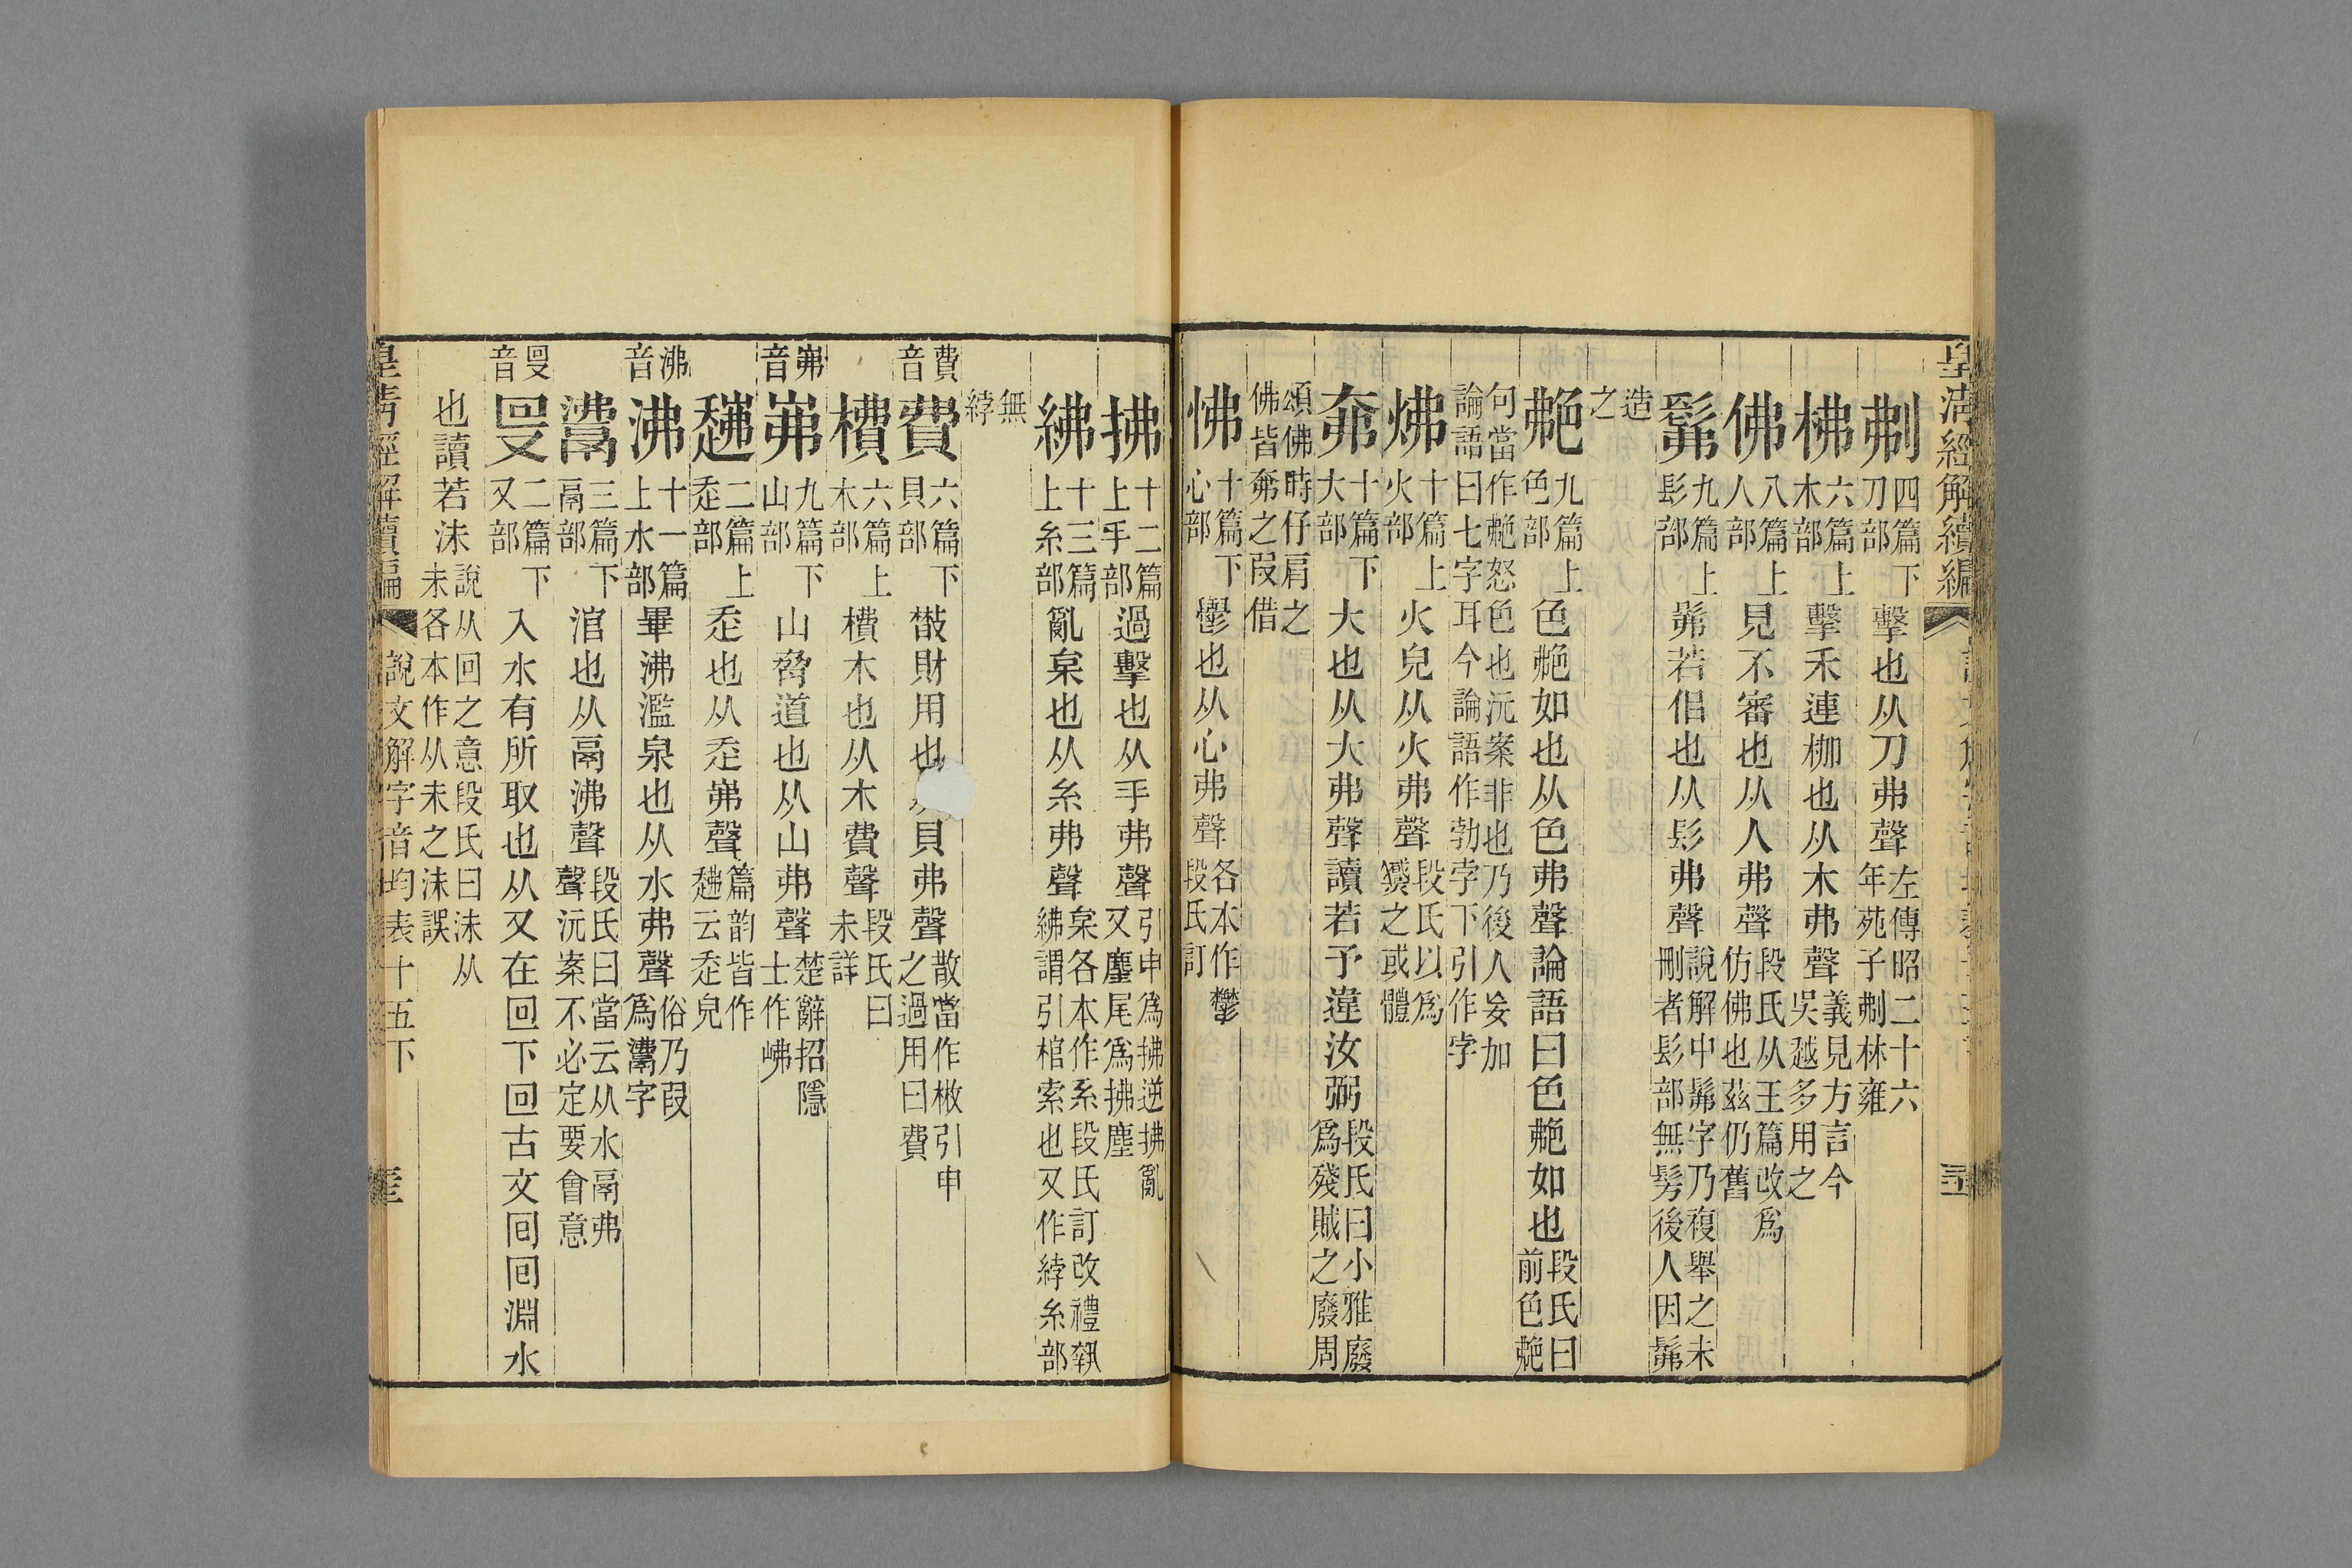 皇清經解續編
刜四篇下刀部擊也从刀弗聲左傳昭二十六年苑子刜林雍
柫六篇上木部擊禾連枷也从木弗聲義見方言今吳越多用之
佛八篇上人部見不審也从人弗聲段氏从玉篇改爲仿佛也茲仍舊
髴九篇上髟部髴若佀也从髟弗聲說解中髴字乃複舉之未刪者髟部無髣後人因髴
造之
艴九篇上色部色艴如也从色弗聲論語曰色艴如也段氏曰前色艴
句當作艴怒色也沅案非也乃後人妄加論語曰七字耳今論語作勃孛下引作孛
炥十篇上火部火皃从火弗聲段氏以爲㷶之或體
奜十篇下大部大也从大弗聲讀若予違汝弼段氏曰小雅廢爲殘賊之廢周
頌佛時仔肩之佛皆奜之叚借
怫十篇下心部鬱也从心弗聲各本作鬱段氏訂
拂十二篇上手部過擊也从手弗聲引申爲拂逆拂亂又麈尾爲拂塵
紼十三篇上糸部亂枲也从糸弗聲枲各本作系段氏訂改禮執紼謂引棺索也又作綍糸部
無綍
費音
費六篇下貝部散財用也从貝弗聲散當作㪔引申之過用曰費
櫠六篇上木部櫠木也从木費聲段氏曰未詳
岪音
岪九篇下山部山脅道也从山弗聲楚辭招隱士作岪
𧺡二篇上走部走也从走岪聲篇韵皆作𧺡云走皃
沸音
沸十一篇上水部畢沸濫泉也从水弗聲俗乃叚爲灊字
灊三篇下鬲部涫也从鬲沸聲段氏曰當云从水鬲弗聲沅案不必定要會意
𠬸音
𠬸二篇下又部入水有所取也从又在囘下囘古文回回淵水
也讀若沬說从回之意段氏曰沬从未各本作从末之沫誤
皇清經解續編
說文解字音均表十五下